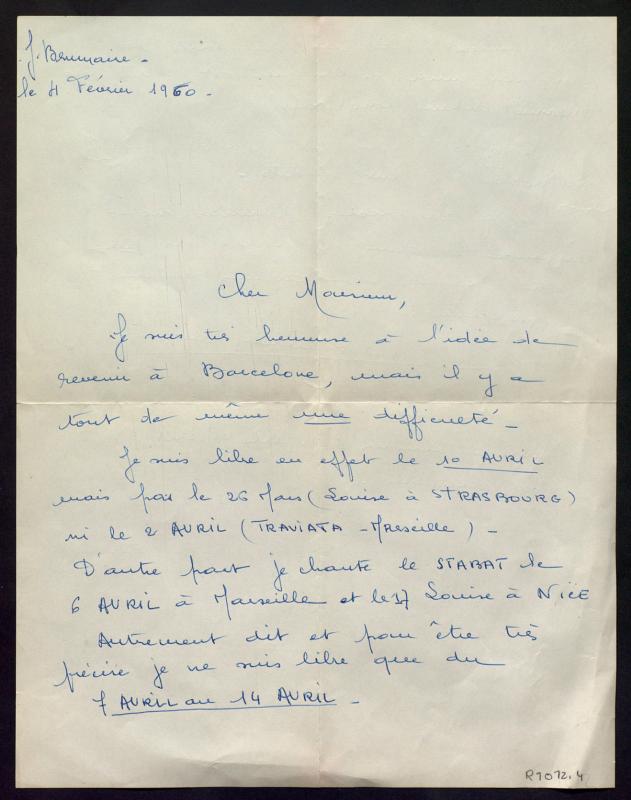 J. Brumaire -
le 4 Février 1960 -
Cher Monsieur,
Je suis très heureuse à l'idée de
revenir à Barcelone, mais il y a
tout de même une difficulté -
Je suis libre en effet le 10 AVRIL
mais pas le 26 Mars (Louise à STRASBOURG)
ni le 2 AVRIL (TRAVIATA - Marseille) -
D'autre part je chante le STABAT le
6 AVRIL à Marseille et le 17 Louise à NICE
Autrement dit et pour être très
précise je ne suis libre que du
7 AVRIL au 14 AVRIL -
R7072.4